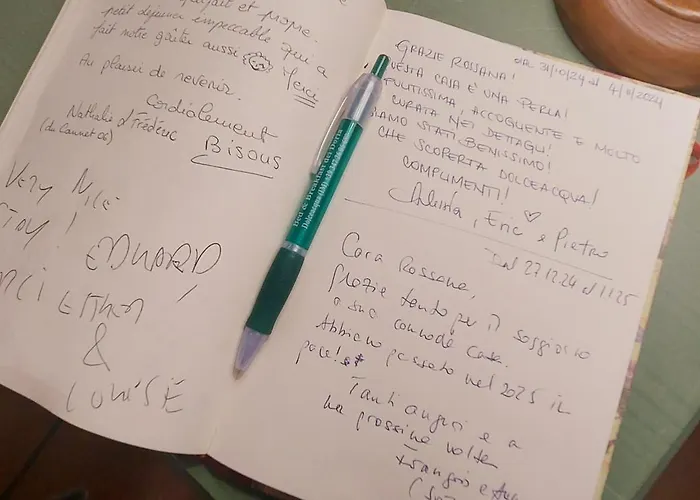 parfait et même
petit déjeuner impeccable qui a
fait notre goûter aussi Merci
Au plaisir de revenir.
Cordialement
Nathalie d'Frédéric Bisous
(du Cannet 06)
VERY NICE
STAY!
EDWARD
&
LOUISE
Bed & Breakfast dei Doria
Dolceacqua (IM)
GRAZIE ROSSANA! DAL 31/10/24 AL 4/11/2024
QUESTA CASA È UNA PERLA!
PULITISSIMA, ACCOGLIENTE E MOLTO
CURATA NEI DETTAGLI!
SIAMO STATI BENISSIMO!
CHE SCOPERTA DOLCEACQUA!
COMPLIMENTI!
Eric e Pietro
Dal 27.12.24 al 1.1.25
Cara Rossana,
grazie tanto per il soggiorno
a sua comoda casa.
Abbiamo passato nel 2025 in
pace!
Tanti auguri e a
una prossima volta